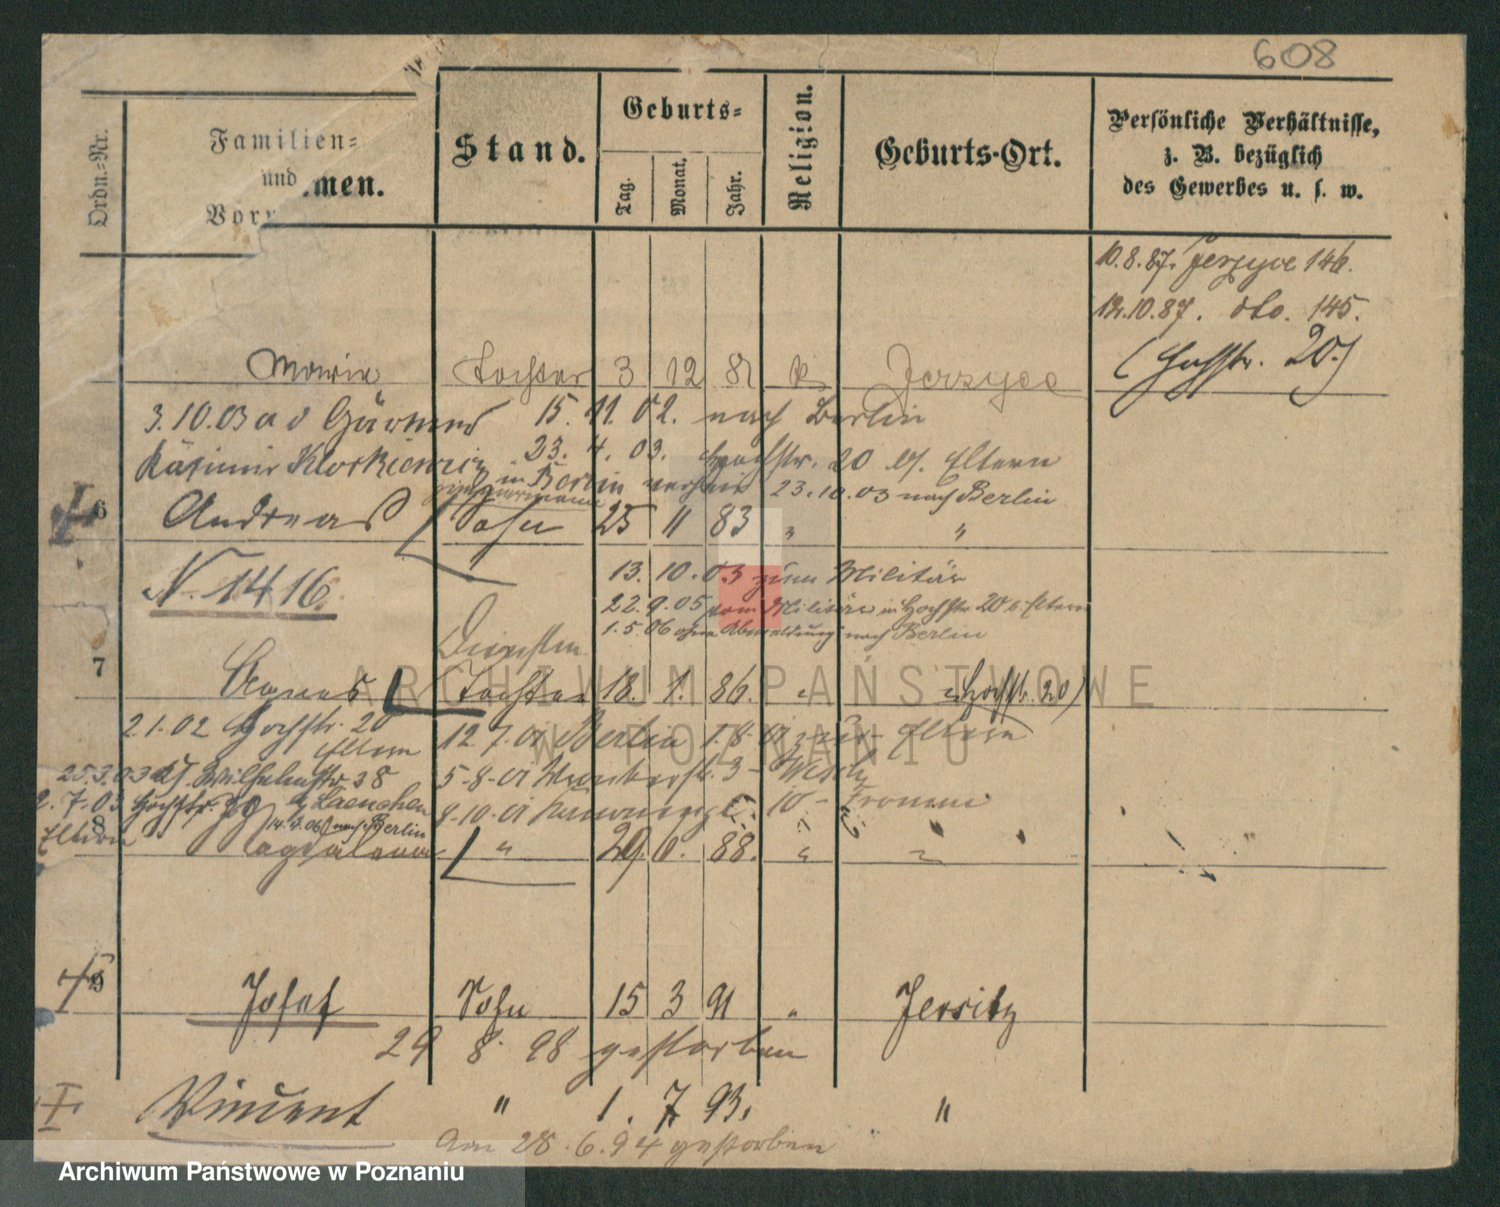 608
Ordn.-Nr.
Familien-
und
Vor
men.
Stand.
Geburts-
Tag.
Monat.
Jahr.
Religion.
Geburts-Ort.
Persönliche Verhältnisse,
z. B. bezüglich
des Gewerbes u. s. w.
10.8.87. Jerzyce 146.
12.10.87. dto. 145.
(Hochstr. 20.)
Maria Tochter 3 12 81 k Jerzyce
3.10.03 a d Gärtner 15. 11. 02. nach Berlin
Kasimir 23. 4. 03. Hochstr. 20 b/. Eltern
in Berlin 23.10.03 nach Berlin
Zimmermann
6 Andreas Sohn 25 11 83 " "
N. 1416. 13. 10. 03 zum Militär
22.9.05 vom Militär in Hochstr 20 b. Eltern
1.5.06 ohne Abmeldung nach Berlin
7 Agnes Tochter 18. 1. 86. " (Hochstr. 20)
2.1.02 Hochstr. 20
Eltern
12.7.01 Berlin 1.8.01 Eltern
25.3.03 Wilhelmstr. 38
5-8-01 3-
2.7.03 Hochstr. 20
Eltern
8-10-01 10- Fromm
14.7.06 nach Berlin
8 " 29. 88. " "
9 Josef Sohn 15 3 91 " Jersitz
29 8. 98 gestorben
Vincent " 1. 7. 93. "
Am 28.6.94 gestorben
ARCHIWUM PAŃSTWOWE
W POZNANIU
Archiwum Państwowe w Poznaniu